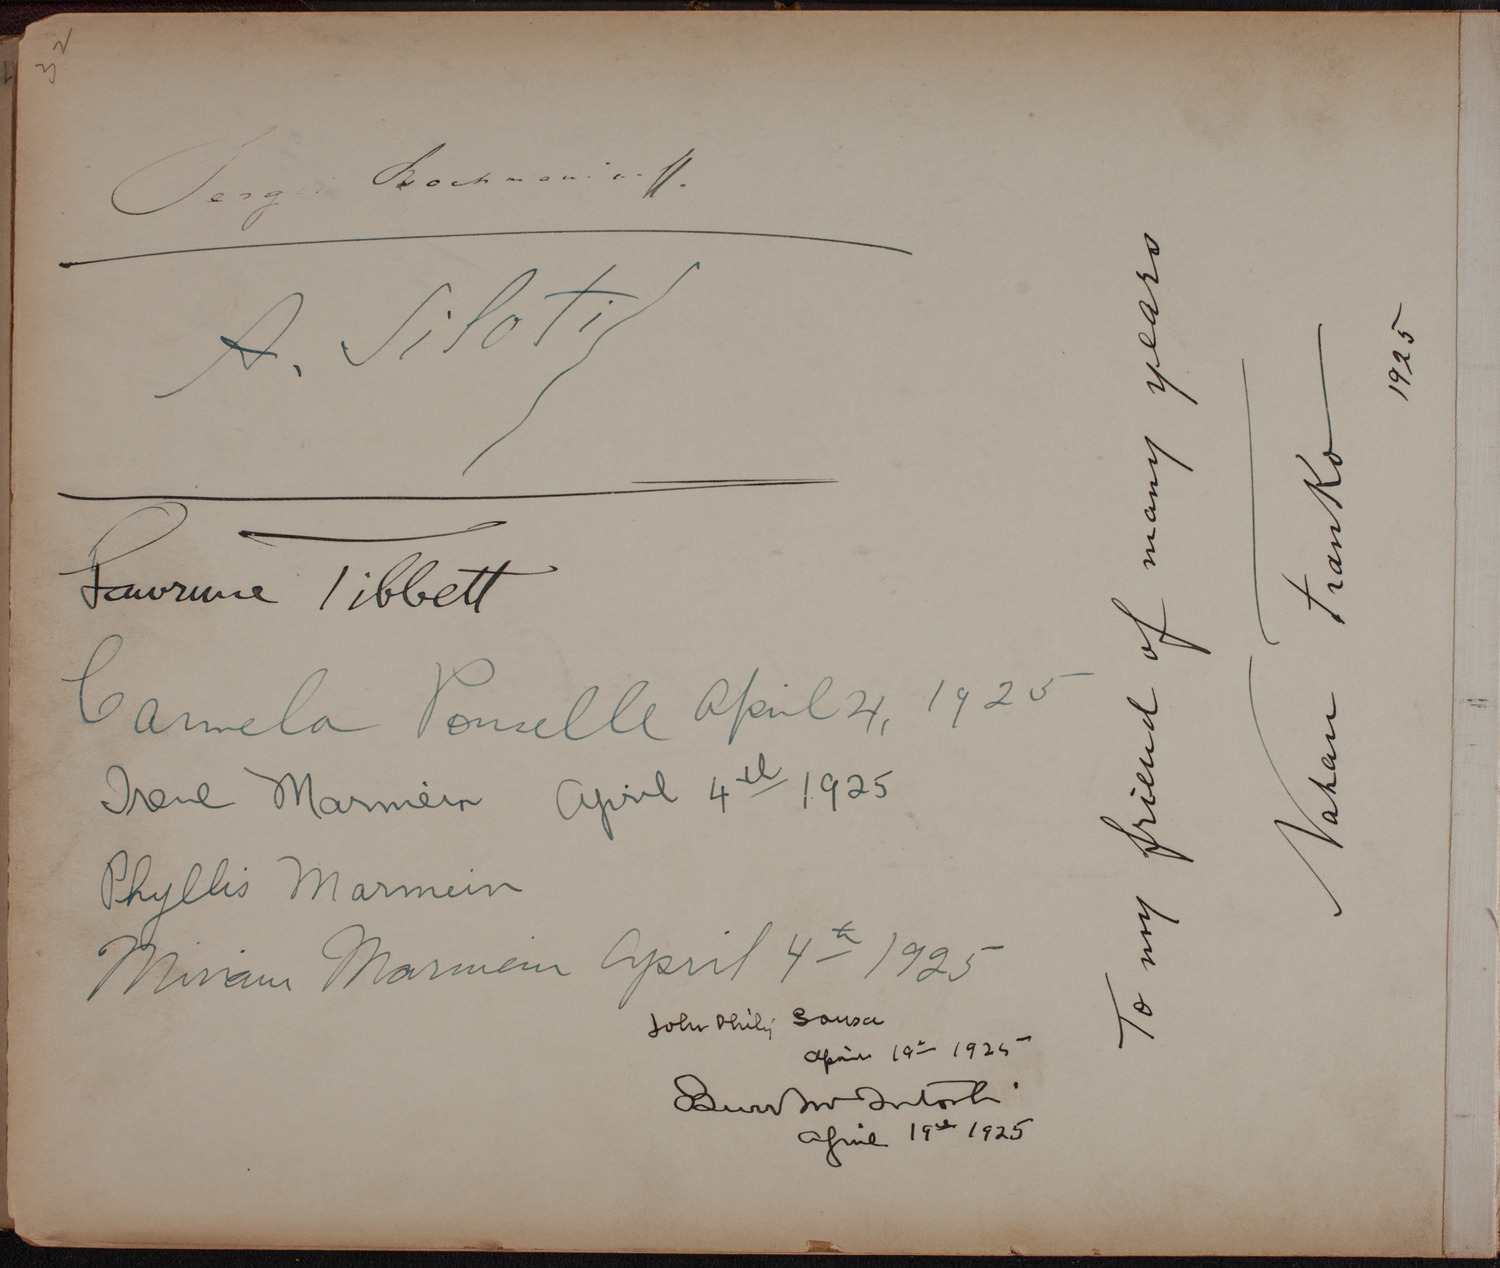 32
Sergei Rachmaninoff.
A. Siloti
Lawrence Tibbett
Carmela Ponselle April 4, 1925
Irene Marmein April 4th 1925
Phyllis Marmein
Miriam Marmein April 4th 1925
John Philip Sousa
April 19th 1925
Burr McIntosh
April 19th 1925
To my friend of many years
Nahan Franko
1925